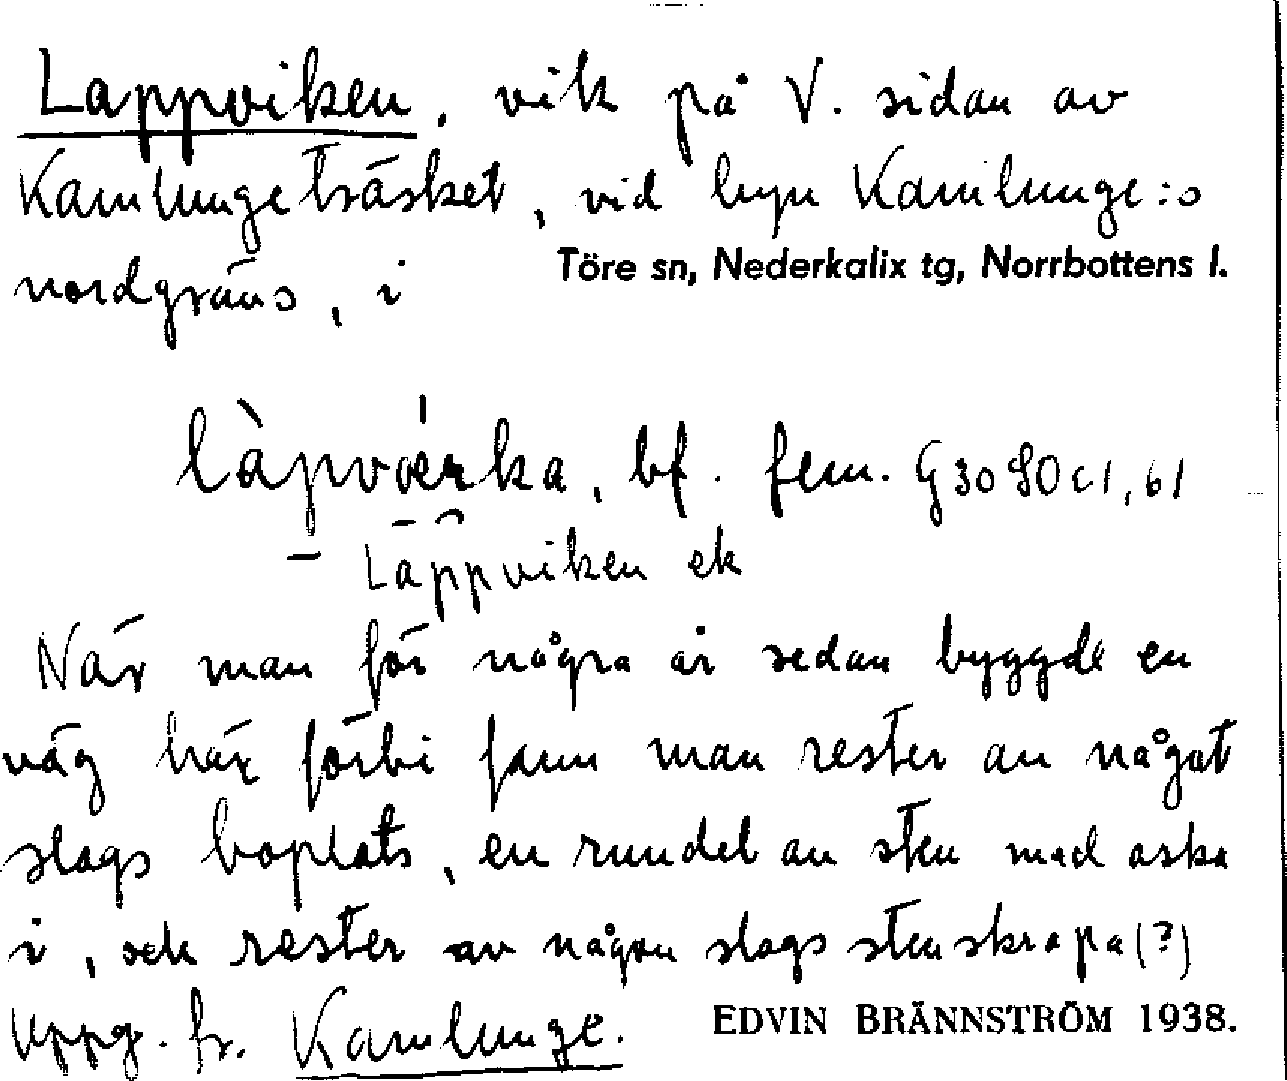 Lappviken, vik på V. sidan av
Kamlungeträsket, vid byn Kamlunge:s
nordgräns, i Töre sn, Nederkalix tg, Norrbottens l.
bf. fem.
– Lappviken ek
När man för några år sedan byggde en
väg här förbi fann man rester av något
slags boplats, en rundel av sten med aska
i, och rester av någon slags stenskrapa(?)
Uppg. fr. Kamlunge. EDVIN BRÄNNSTRÖM 1938.